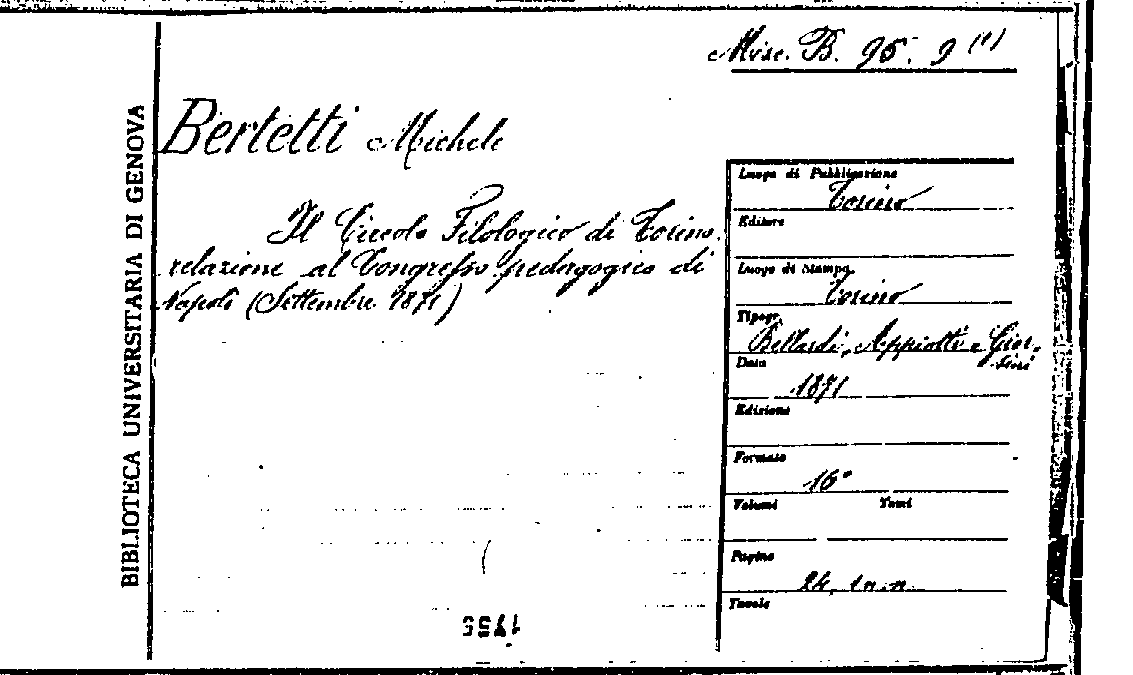 Misc. B. 95. 9 (1)
BIBLIOTECA UNIVERSITARIA DI GENOVA
Bertetti Michele
Il Circolo Filologico di Torino.
relazione al Congresso pedagogico di
Napoli (Settembre 1871)
Luogo di Pubblicazione
Torino
Editore
Luogo di Stampa
Torino
Tipogr.
Bellardi, Appiotti e Gior-
sini
Data
1871
Edizione
Formato
16°
Volumi Tomi
Pagine
24, 1 n. n.
Tavole